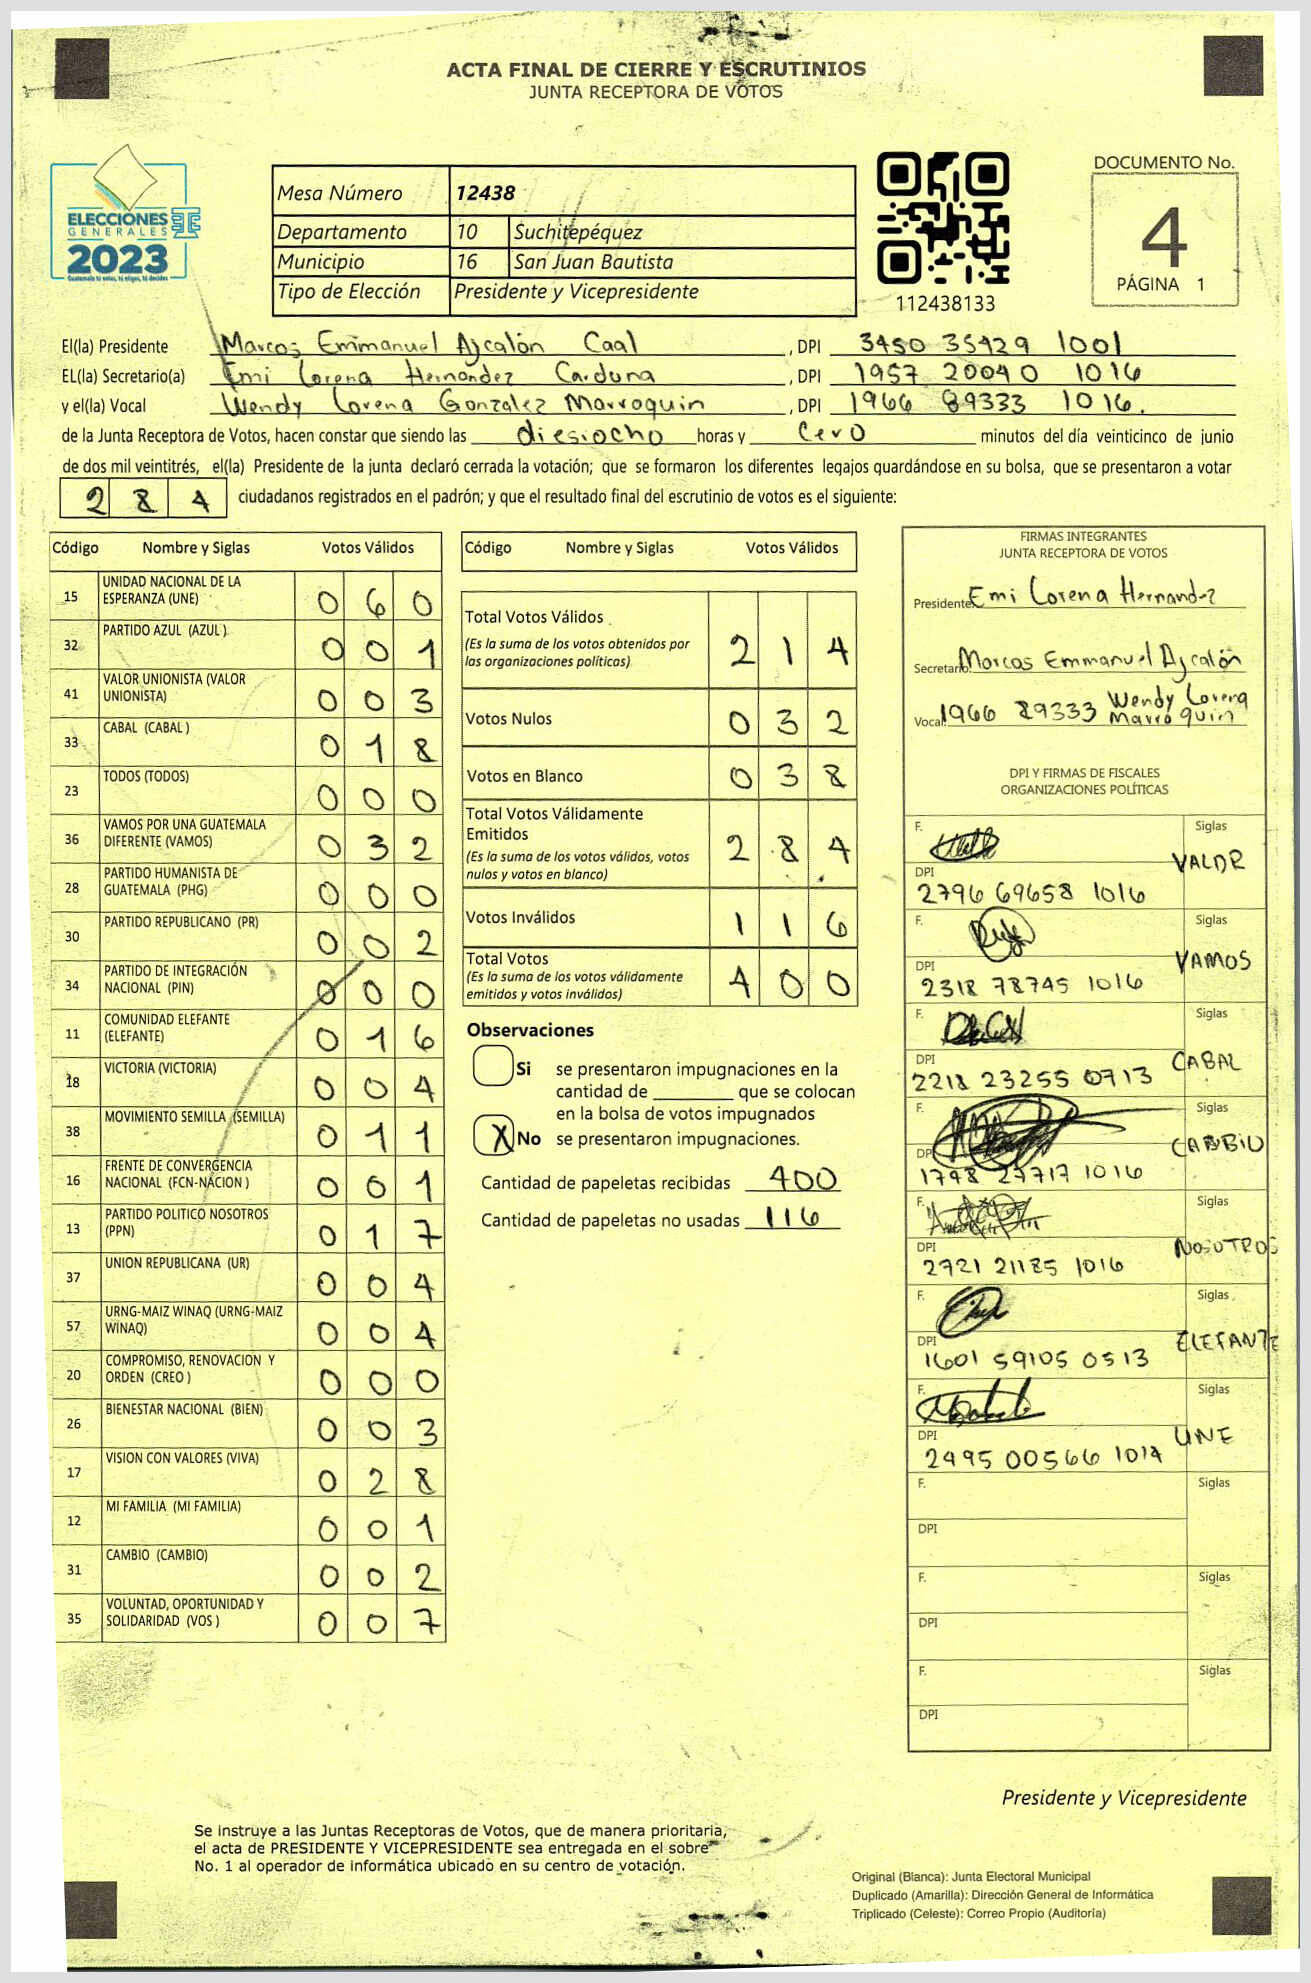 ACTA FINAL DE CIERRE Y ESCRUTINIOS
JUNTA RECEPTORA DE VOTOS
ELECCIONES
GENERALES
2023
Guatemala tú votas, tú eliges, tú decides
Mesa Número 12438
Departamento 10 Suchitepéquez
Municipio 16 San Juan Bautista
Tipo de Elección Presidente y Vicepresidente
112438133
DOCUMENTO No.
4
PÁGINA 1
El(la) Presidente Marcos Emmanuel Ajcalón Caal, DPI 3450 35429 1001
EL(la) Secretario(a) Emi Lorena Hernandez Cardona, DPI 1957 20040 1016
y el(la) Vocal Wendy Lorena Gonzalez Marroquin, DPI 1966 89333 1016.
de la Junta Receptora de Votos, hacen constar que siendo las diesiocho horas y cero minutos del día veinticinco de junio
de dos mil veintitrés, el(la) Presidente de la junta declaró cerrada la votación; que se formaron los diferentes legajos guardándose en su bolsa, que se presentaron a votar
284 ciudadanos registrados en el padrón; y que el resultado final del escrutinio de votos es el siguiente:
Código Nombre y Siglas Votos Válidos
15 UNIDAD NACIONAL DE LA ESPERANZA (UNE) 060
32 PARTIDO AZUL (AZUL ) 001
41 VALOR UNIONISTA (VALOR UNIONISTA) 003
33 CABAL (CABAL ) 018
23 TODOS (TODOS) 000
36 VAMOS POR UNA GUATEMALA DIFERENTE (VAMOS) 032
28 PARTIDO HUMANISTA DE GUATEMALA (PHG) 000
30 PARTIDO REPUBLICANO (PR) 002
34 PARTIDO DE INTEGRACIÓN NACIONAL (PIN) 000
11 COMUNIDAD ELEFANTE (ELEFANTE) 016
18 VICTORIA (VICTORIA) 004
38 MOVIMIENTO SEMILLA (SEMILLA) 011
16 FRENTE DE CONVERGENCIA NACIONAL (FCN-NACION ) 001
13 PARTIDO POLITICO NOSOTROS (PPN) 017
37 UNION REPUBLICANA (UR) 004
57 URNG-MAIZ WINAQ (URNG-MAIZ WINAQ) 004
20 COMPROMISO, RENOVACION Y ORDEN (CREO ) 000
26 BIENESTAR NACIONAL (BIEN) 003
17 VISION CON VALORES (VIVA) 028
12 MI FAMILIA (MI FAMILIA) 001
31 CAMBIO (CAMBIO) 002
35 VOLUNTAD, OPORTUNIDAD Y SOLIDARIDAD (VOS ) 007
Código Nombre y Siglas Votos Válidos
Total Votos Válidos 214
(Es la suma de los votos obtenidos por
las organizaciones políticas)
Votos Nulos 032
Votos en Blanco 038
Total Votos Válidamente
Emitidos 284
(Es la suma de los votos válidos, votos
nulos y votos en blanco)
Votos Inválidos 116
Total Votos 400
(Es la suma de los votos válidamente
emitidos y votos inválidos)
Observaciones
Si se presentaron impugnaciones en la
cantidad de ________ que se colocan
en la bolsa de votos impugnados
X No se presentaron impugnaciones.
Cantidad de papeletas recibidas 400
Cantidad de papeletas no usadas 116
FIRMAS INTEGRANTES
JUNTA RECEPTORA DE VOTOS
Presidente: Emi Lorena Hernandez
Secretario: Marcos Emmanuel Ajcalón
Vocal: 1966 89333 Wendy Lorena
Marroquin
DPI Y FIRMAS DE FISCALES
ORGANIZACIONES POLÍTICAS
F. Siglas
VALOR
DPI
2796 69658 1016
F. Siglas
VAMOS
DPI
2318 78745 1016
F. Siglas
CABAL
DPI
2218 23255 0713
F. Siglas
CAMBIO
DPI
1798 27717 1016
F. Siglas
NOSOTROS
DPI
2721 21185 1016
F. Siglas
ELEFANTE
DPI
1601 59105 0513
F. Siglas
UNE
DPI
2495 00566 1017
F. Siglas
DPI
F. Siglas
DPI
F. Siglas
DPI
Presidente y Vicepresidente
Se instruye a las Juntas Receptoras de Votos, que de manera prioritaria,
el acta de PRESIDENTE Y VICEPRESIDENTE sea entregada en el sobre
No. 1 al operador de informática ubicado en su centro de votación.
Original (Blanca): Junta Electoral Municipal
Duplicado (Amarilla): Dirección General de Informática
Triplicado (Celeste): Correo Propio (Auditoría)